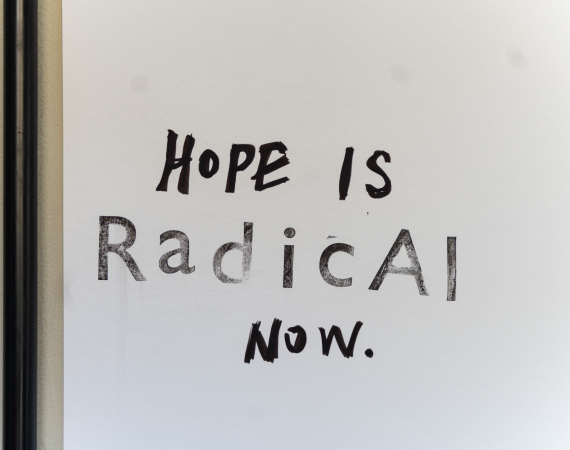 HOPE IS
RadicAl
NOW.